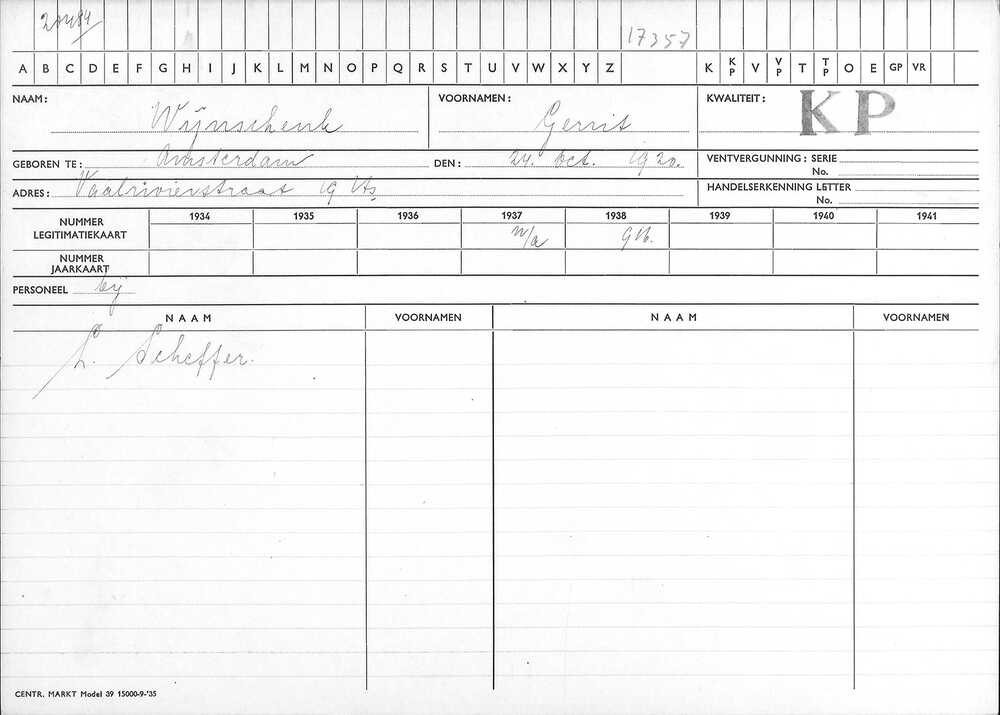 17357
A B C D E F G H I J K L M N O P Q R S T U V W X Y Z K KP V VP T TP O E GP VR
NAAM: Wijnschenk VOORNAMEN: Gerrit KWALITEIT: KP
GEBOREN TE: Amsterdam DEN: 24 Oct. 1920. VENTVERGUNNING: SERIE
No.
ADRES: Vaalrivierstraat 19 HANDELSERKENNING LETTER
No.
1934 1935 1936 1937 1938 1939 1940 1941
NUMMER
LEGITIMATIEKAART n/a
NUMMER
JAARKAART
PERSONEEL bij
NAAM VOORNAMEN NAAM VOORNAMEN
L. Scheffer.
CENTR. MARKT Model 39 15000-9-'35